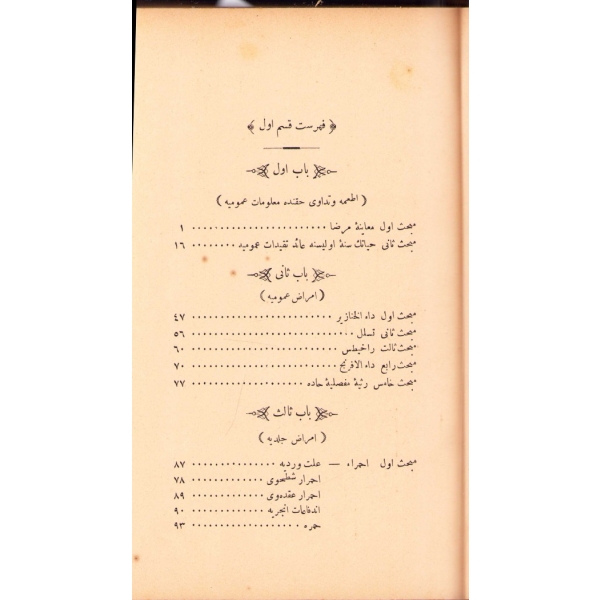 ﴿ فهرست قسم اول ﴾
باب اول
( اطعمه وتداوی حقنده معلومات عمومیه )
مبحث اول معاینۀ مرضا ۱
مبحث ثانی حیاتك سنۀ اولیسنه عائد تقیدات عمومیه ۱٦
باب ثانی
( امراض عمومیه )
مبحث اول داء الخنازیر ٤۷
مبحث ثانی تسلل ٥٦
مبحث ثالث راخیطس ٦۰
مبحث رابع داء الافرنج ۷۰
مبحث خامس رثیۀ مفصلیۀ حاده ۷۷
باب ثالث
( امراض جلدیه )
مبحث اول احمراء — علت وردیه ۸۷
احمرار سطحوی ۷۸
احمرار عقده‌وی ۸۹
اندفاعات ۹۰
حمره ۹۳